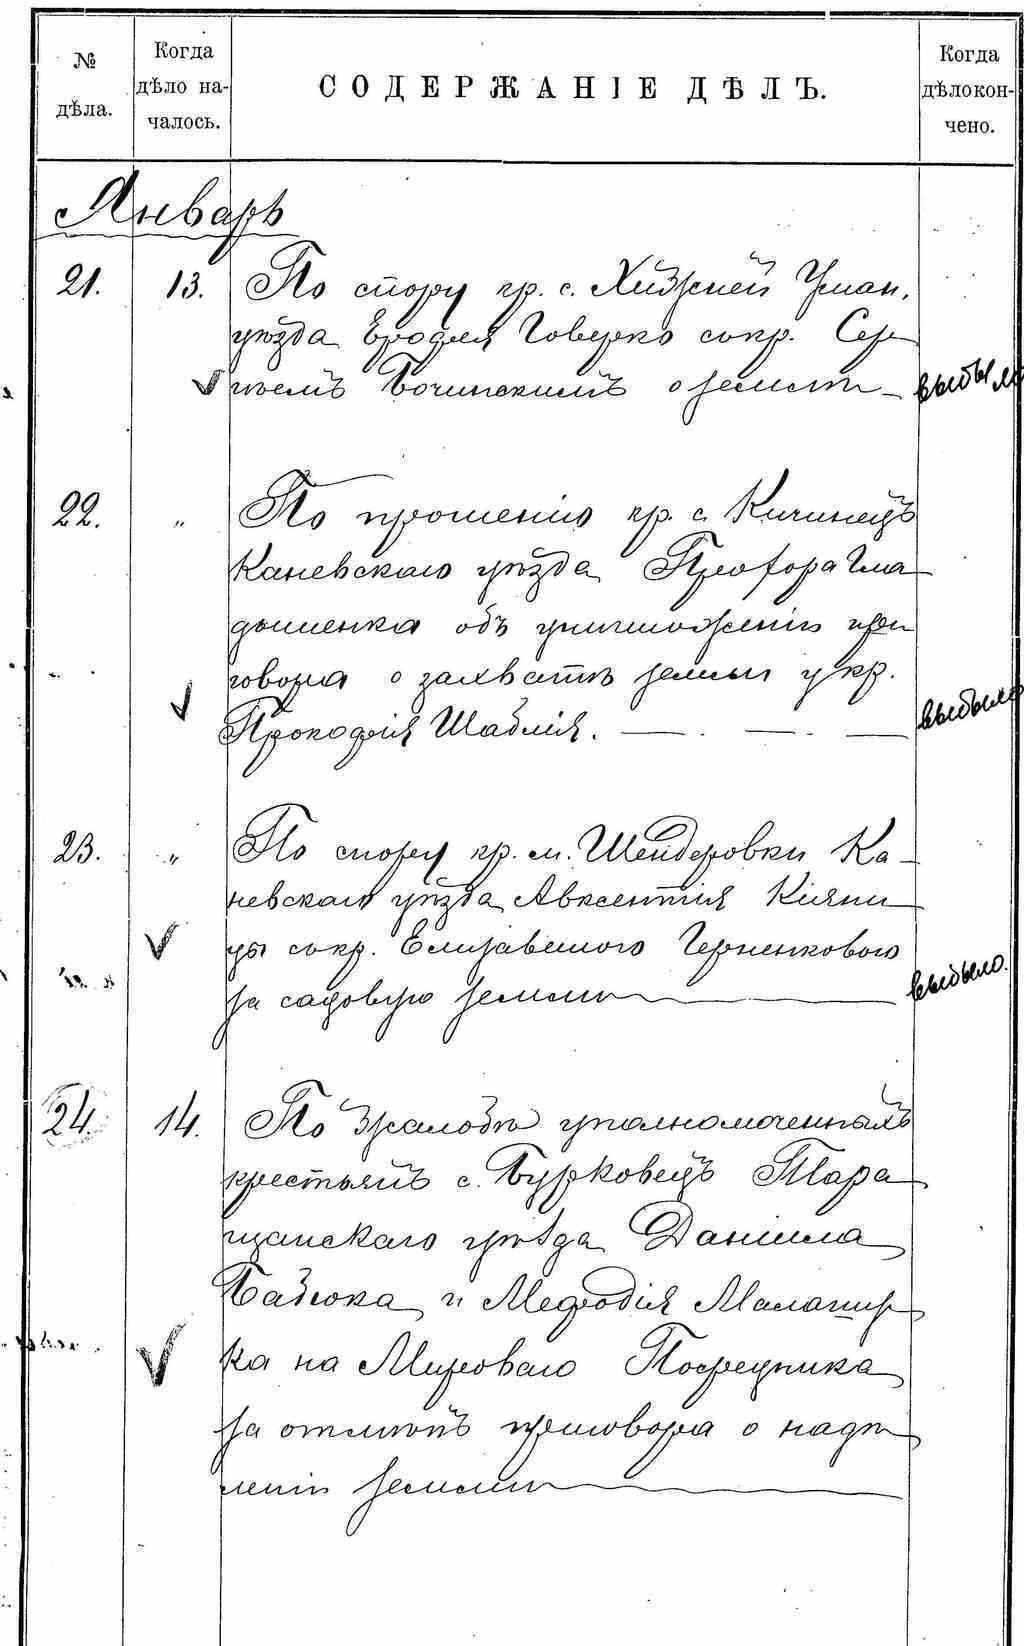 № дѣла.
Когда дѣло началось.
СОДЕРЖАНІЕ ДѢЛЪ.
Когда дѣло кончено.
Январь
21. 13. По спору кр. с. Хижней Уман.
уѣзда Ерофея Говерко с кр. Сер-
гѣемъ Бочинскимъ о земли выбыло
22. " По прошенію кр. с. Кичинецъ
Каневскаго уѣзда Гла
дышенка объ уничтоженіи при
говора о захватѣ земли у кр.
Прокофія Шаблія. — выбыло
23. " По спору кр. м. Шендеровки Ка-
невскаго уѣзда Авксентія Кіяни
цы с кр. Елизаветою Черненковою
за садовую землю — выбыло.
24. 14. По жалобѣ уполномоченныхъ
крестьянъ с. Бурковецъ Тара
щанскаго уѣзда Даніила
и Мефодія
ка на Мироваго Посредника
за отмѣну приговора о надѣ
леніи землею